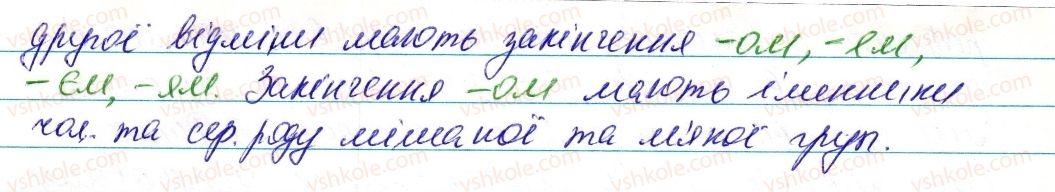 другої відміни мають закінчення -ом, -ем,
-єм, -ям. Закінчення -ом мають іменники
чол. та сер. роду мішаної та м'якої груп.